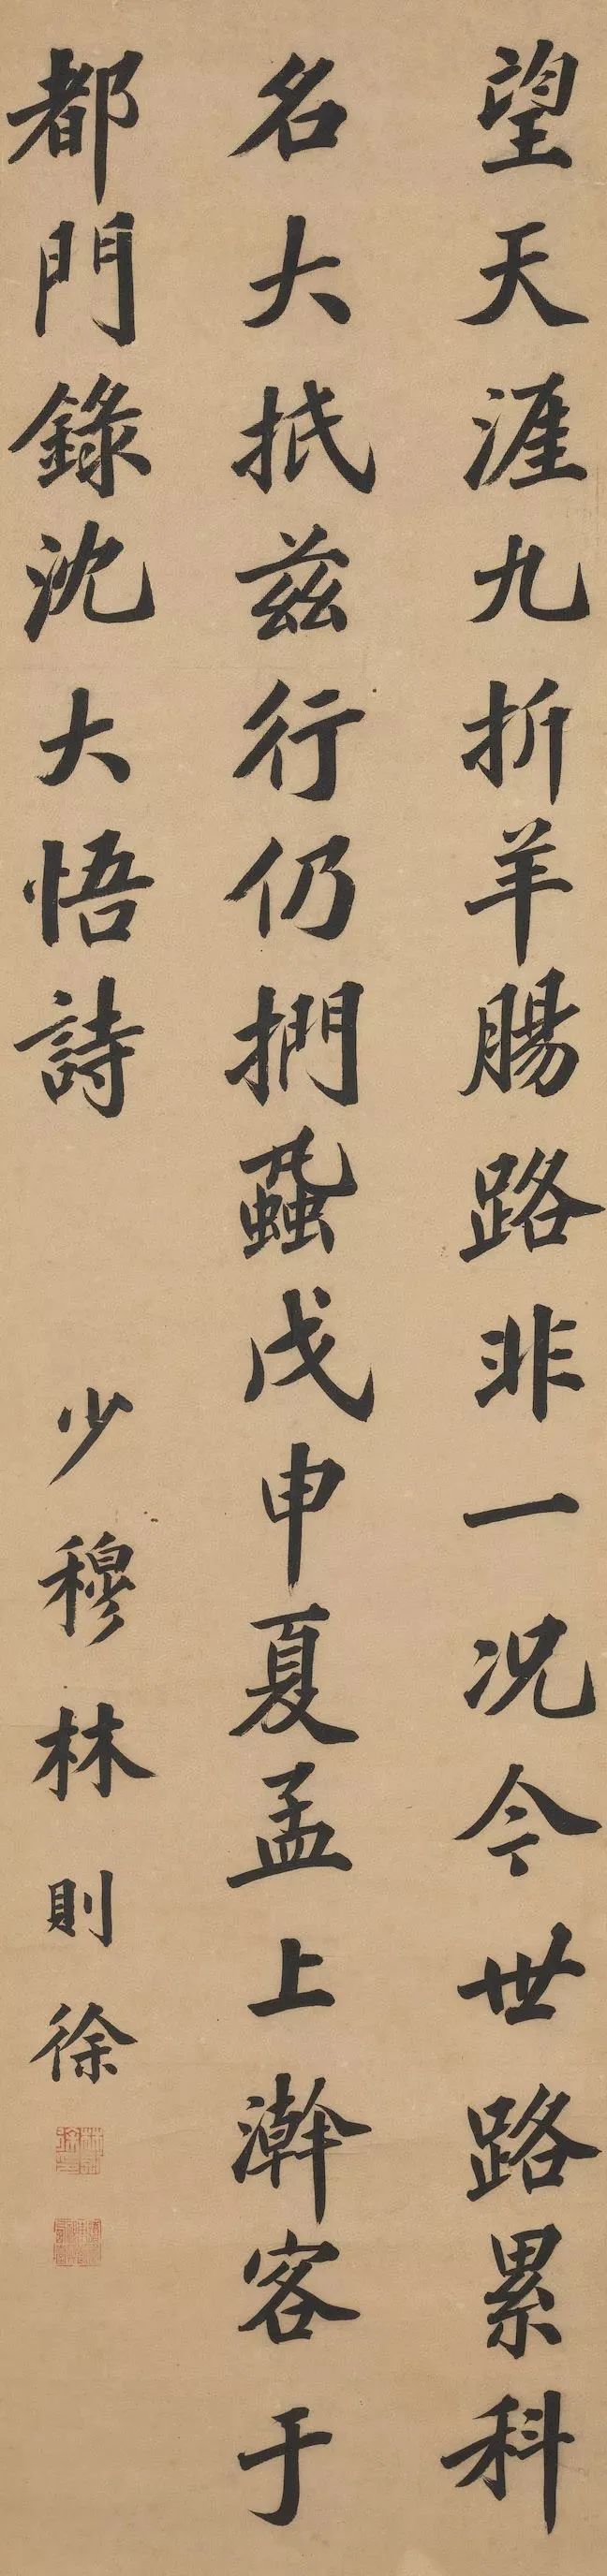 望天涯九折羊腸路非一况今世路累科
名大抵兹行仍捫蝨戊申夏孟上澣客于
都門錄沈大悟詩
少穆林則徐